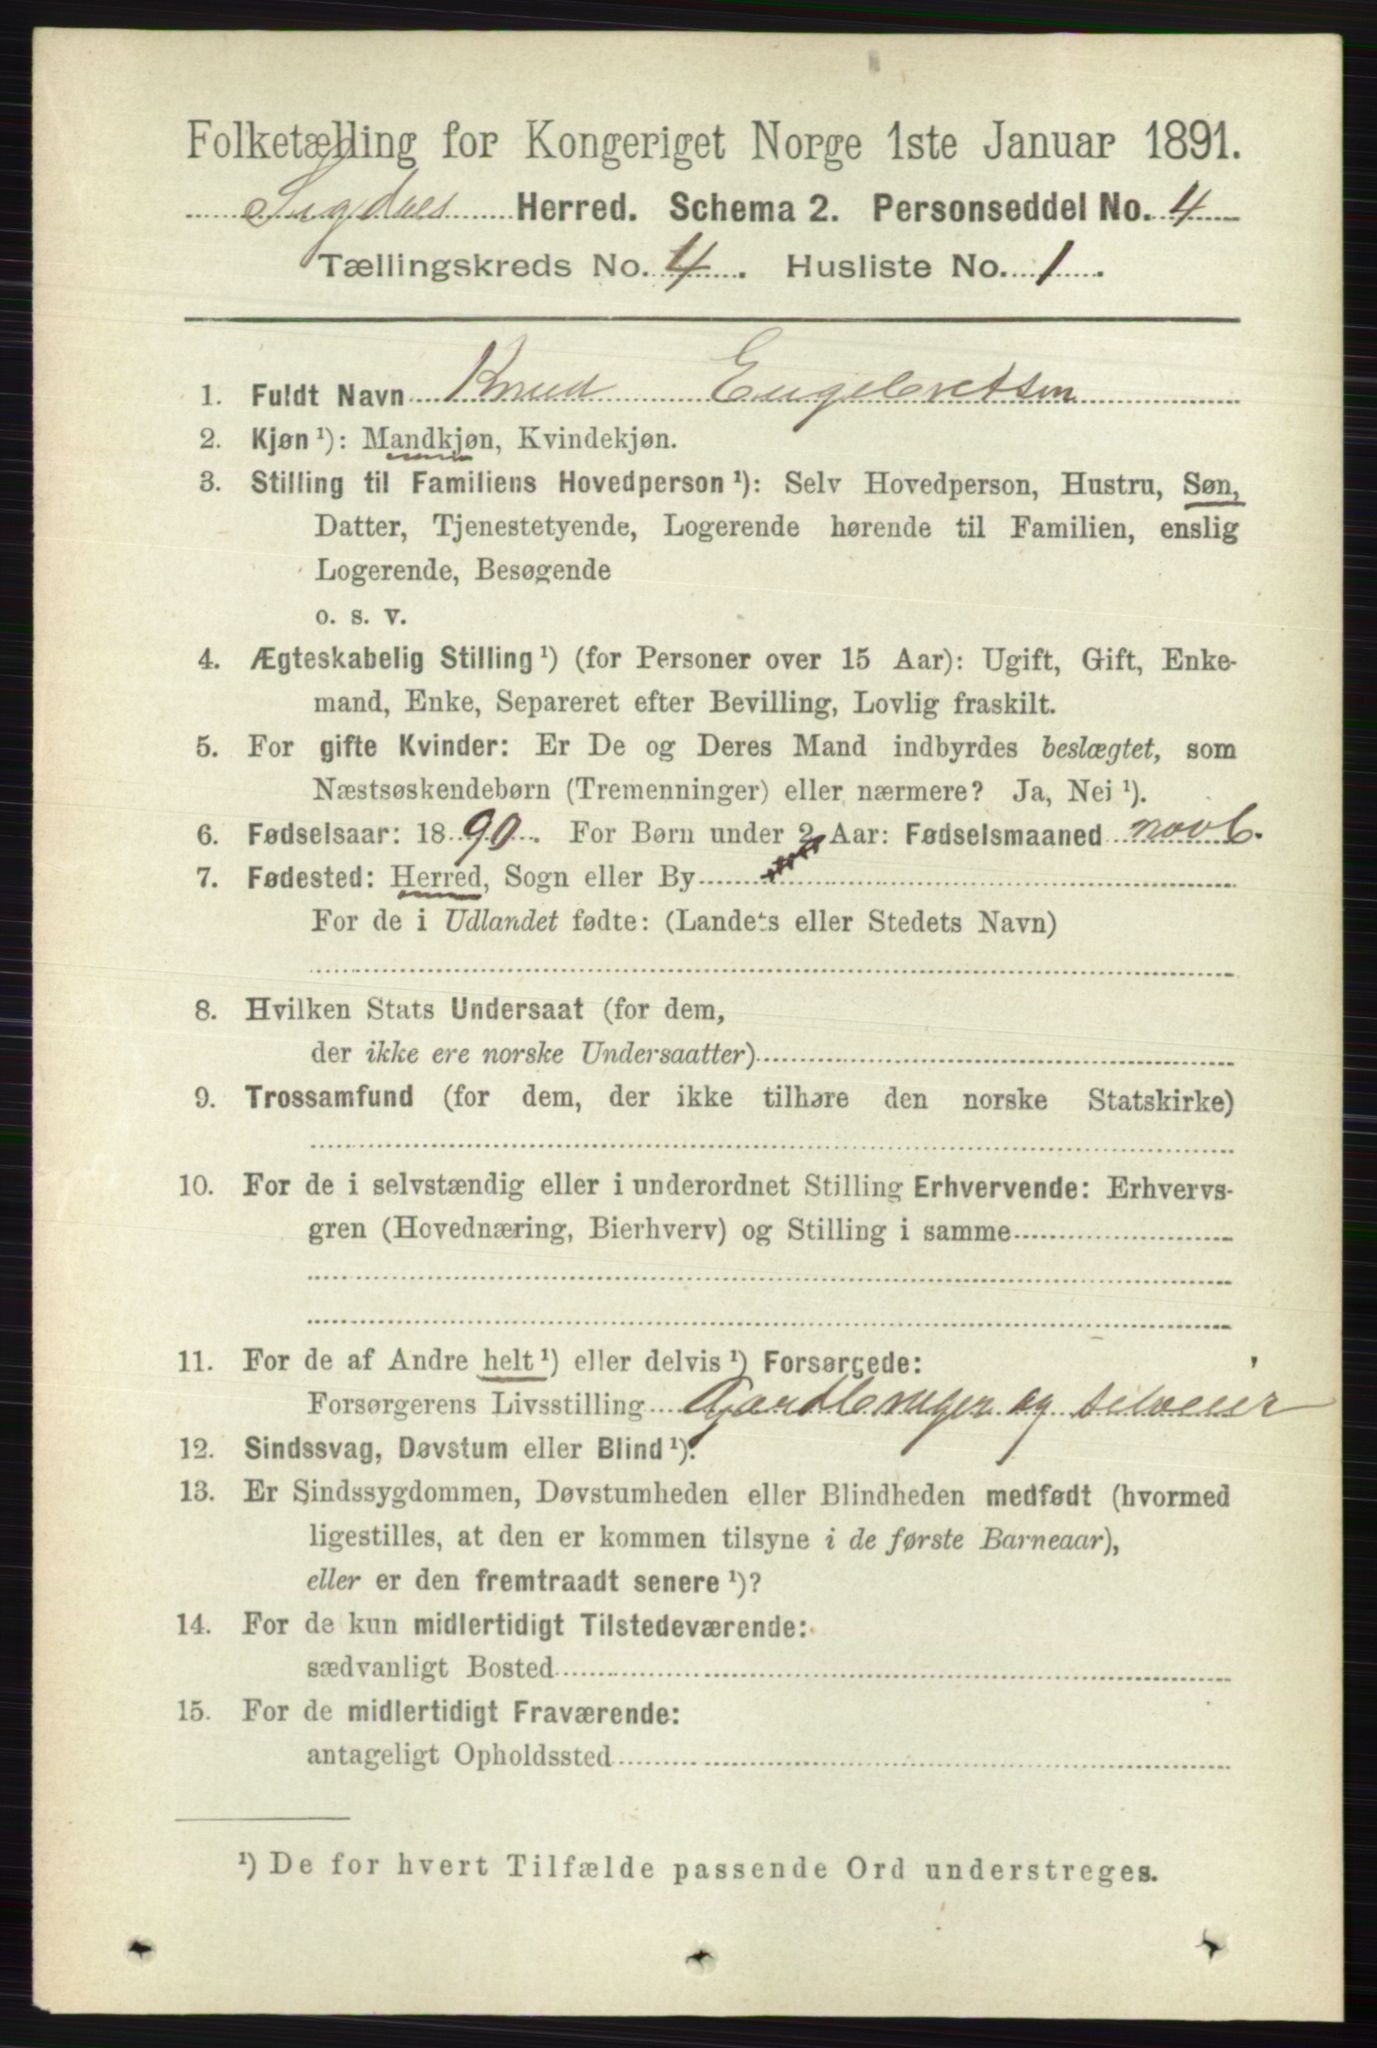 Folketælling for Kongeriget Norge 1ste Januar 1891.
Sigdals Herred. Schema 2. Personseddel No. 4
Tællingskreds No. 4. Husliste No. 1.
1. Fuldt Navn Knud Engebretsen
2. Kjøn ¹): Mandkjøn, Kvindekjøn.
3. Stilling til Familiens Hovedperson ¹): Selv Hovedperson, Hustru, Søn,
Datter, Tjenestetyende, Logerende hørende til Familien, enslig
Logerende, Besøgende
o. s. v.
4. Ægteskabelig Stilling ¹) (for Personer over 15 Aar): Ugift, Gift, Enke-
mand, Enke, Separeret efter Bevilling, Lovlig fraskilt.
5. For gifte Kvinder: Er De og Deres Mand indbyrdes beslægtet, som
Næstsøskendebørn (Tremenninger) eller nærmere? Ja, Nei ¹).
6. Fødselsaar: 1890. For Børn under 2 Aar: Fødselsmaaned novb.
7. Fødested: Herred, Sogn eller By
For de i Udlandet fødte: (Landets eller Stedets Navn)
8. Hvilken Stats Undersaat (for dem,
der ikke ere norske Undersaatter)
9. Trossamfund (for dem, der ikke tilhøre den norske Statskirke)
10. For de i selvstændig eller i underordnet Stilling Erhvervende: Erhvervs-
gren (Hovednæring, Bierhverv) og Stilling i samme
11. For de af Andre helt ¹) eller delvis ¹) Forsørgede:
Forsørgerens Livsstilling Gardbruger og selveier
12. Sindssvag, Døvstum eller Blind ¹).
13. Er Sindssygdommen, Døvstumheden eller Blindheden medfødt (hvormed
ligestilles, at den er kommen tilsyne i de første Barneaar),
eller er den fremtraadt senere ¹)?
14. For de kun midlertidigt Tilstedeværende:
sædvanligt Bosted
15. For de midlertidigt Fraværende:
antageligt Opholdssted
¹) De for hvert Tilfælde passende Ord understreges.